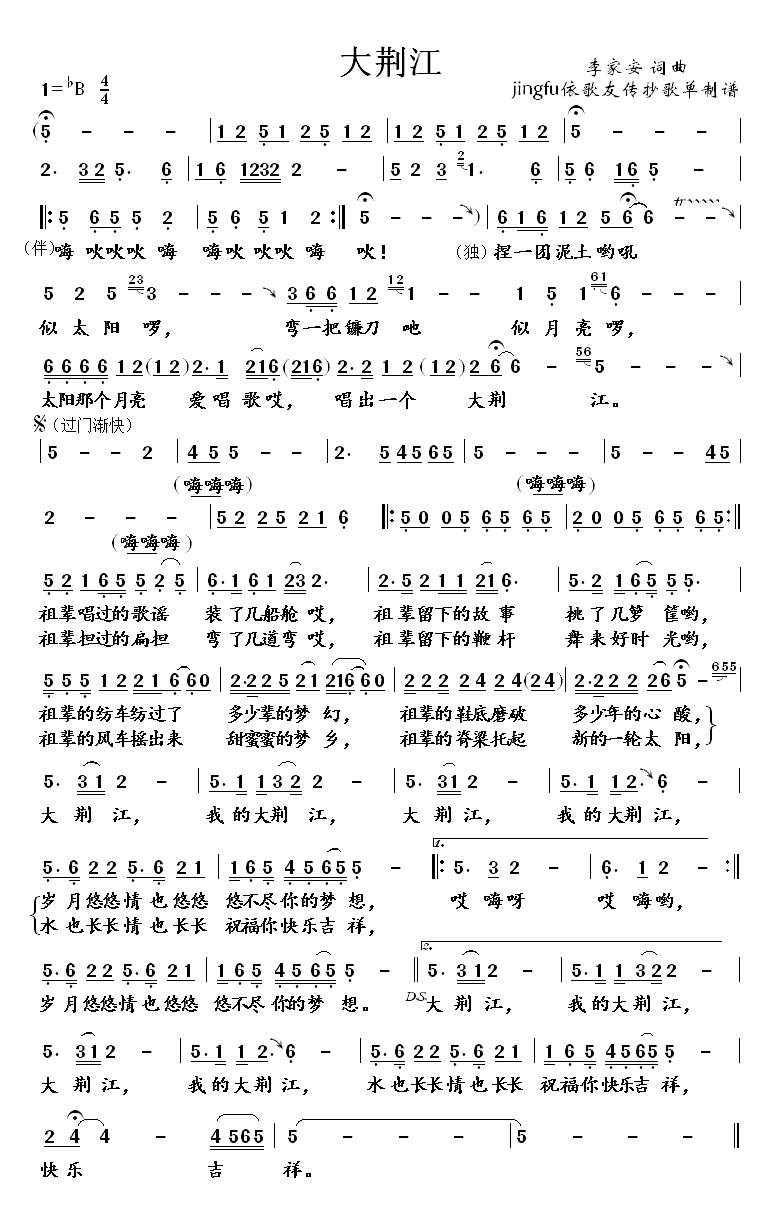 大荆江
李家安 词曲
1=♭B 4/4
jingfu依歌友传抄歌单制谱
(5 - - - | 1 2 5 1 2 5 1 2 | 1 2 5 1 2 5 1 2 | 5 - - - |
2· 3 2 5· 6 | 1 6 1232 2 - | 5 2 3 2 1· 6 | 5 6 1 6 5 - |
‖: 5 6 5 5 2 | 5 6 5 1 2 :‖ 5 - - - ) | 6 1 6 1 2 5 6 6 - - |
(伴)嗨 吙吙吙 嗨 嗨吙 吙吙 嗨 吙! (独) 捏一团泥土哟吼
5 2 5 23 3 - - - 3 6 6 1 2 12 1 - - 1 5 1 61 6 - - - |
似 太 阳 啰, 弯一把镰刀 吔 似 月 亮 啰,
6 6 6 6 1 2 (1 2) 2· 1 216 (216) 2· 2 1 2 (1 2) 2 6 6 - 56 5 - - |
太阳那个月亮 爱 唱 歌 哎, 唱 出 一 个 大 荆 江。
𝄋(过门渐快)
| 5 - - 2 | 4 5 5 - - | 2· 5 4 5 6 5 | 5 - - - | 5 - - 4 5 |
(嗨嗨嗨) (嗨嗨嗨)
2 - - - | 5 2 2 5 2 1 6 ‖: 5 0 0 5 6 5 6 5 | 2 0 0 5 6 5 6 5 :‖
(嗨嗨嗨)
5 2 1 6 5 5 2 5 | 6· 1 6 1 2 3 2· | 2· 5 2 1 1 2 1 6· | 5· 2 1 6 5 5 5· |
祖辈唱过的歌谣 装了几船舱 哎, 祖辈留下的故 事 挑了几箩 筐哟,
祖辈担过的扁担 弯了几道弯 哎, 祖辈留下的鞭 杆 舞来好时 光哟,
5 5 5 1 2 2 1 6 6 0 | 2·2 2 5 2 1 2 1 6 6 0 | 2 2 2 2 4 2 4 (2 4) | 2·2 2 2 2 6 5 - 655 |
祖辈的纺车纺过了 多少辈的梦 幻, 祖辈的鞋底磨破 多少年的心 酸,
祖辈的风车摇出来 甜蜜蜜的梦 乡, 祖辈的脊梁托起 新的一轮太 阳,
5· 3 1 2 - | 5· 1 1 3 2 2 - | 5· 3 1 2 - | 5· 1 1 2· 6 - |
大 荆 江, 我 的 大荆 江, 大 荆 江, 我 的 大荆 江,
5· 6 2 2 5· 6 2 1 | 1 6 5 4 5 6 5 5 - ‖: 1. 5· 3 2 - | 6· 1 2 - :‖
岁 月 悠悠 情 也 悠悠 悠不尽你的梦 想, 哎 嗨呀 哎 嗨哟,
水 也 长长 情 也 长长 祝福你快乐吉 祥,
5· 6 2 2 5· 6 2 1 | 1 6 5 4 5 6 5 5 - ‖ 2. 5· 3 1 2 - | 5· 1 1 3 2 2 - |
岁 月 悠悠 情 也 悠悠 悠不尽你的梦 想。 D.S. 大 荆 江, 我 的 大荆 江,
5· 3 1 2 - | 5· 1 1 2· 6 - | 5· 6 2 2 5· 6 2 1 | 1 6 5 4 5 6 5 5 - |
大 荆 江, 我 的 大荆 江, 水 也 长长 情 也 长长 祝福你快乐吉 祥,
2 4 4 - 4 5 6 5 | 5 - - - | 5 - - - ‖
快 乐 吉 祥。